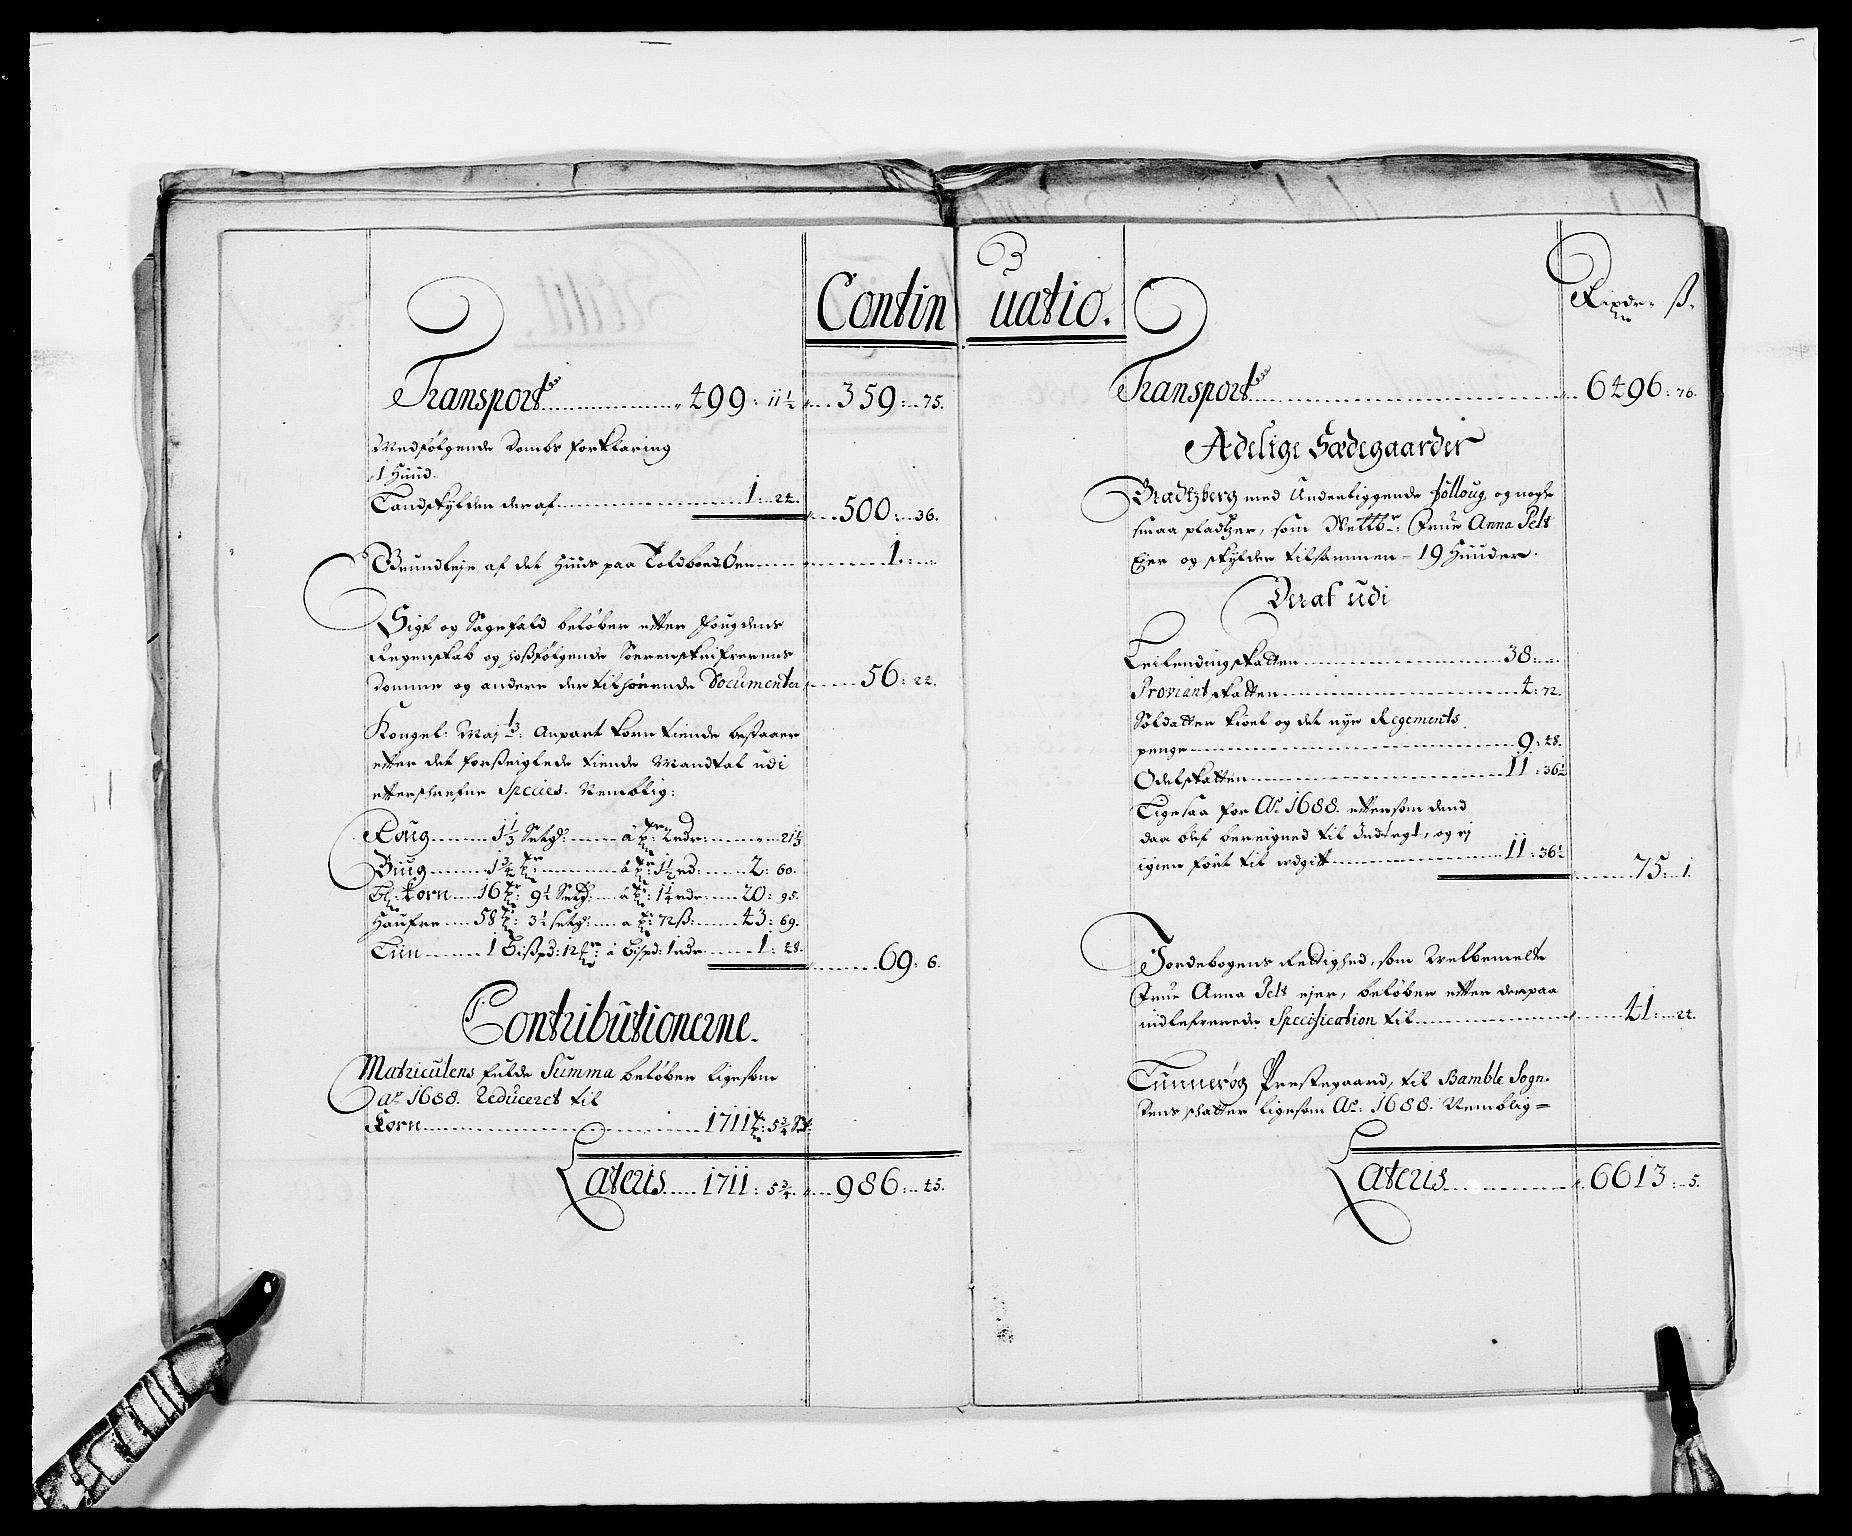 Continuatio.
Transport 499: 11½ 359: 75.
Medfølgende Dombs forklaring
1 Huud
Landskylden der af 1: 24. 500: 36.
Grundleje af det Huus paa Toldbod Øen 1:
Sigt og Sagefald beløber efter Fougdens
Regenskab og hosfølgende Sorenskrifverens
Domme og andere dertilhørende Documenter 56: 24.
Kongel: Maj: Anpart korn tiende bestaaer
efter det forseiglede tiende Mandtal udi
efterschrefne Species. Nemblig:
Roug 1⅓ Setg: â 2 rdr: 21⅓
Biug 1¾ â 1½ rd: 2: 60.
Bl: korn 16 9½ Setg: â 1¼ rdr: 20: 95.
Haufre 58 3½ setg: â 72 ß: 43: 69.
Liin 1 Bißpd: 12 â Bißpd: 1 rdr 1: 48. 69: 6.
Contributionerne.
Matriculens fulde Summa beløber ligesom
ao 1688. reduceret til
Korn 1711: 5¾ St:
Lateris 1711: 5¾. 986: 45.
3
Rixdr ß.
Transport 6496: 76.
Adelige Sædegaarder
Bradtzberg med Underliggende folloug og nogle
smaa pladtzer, som Velb: Frue Anna Pelt
Ejer og skylder tilsammen = 19 Huuder.
Deraf udi
Leilendingskatten 38:
Proviant skatten 4: 72.
Soldatter kioel og det nye Regements
penge 9: 48.
Odelskatten 11: 36½
Ligesaa for Ao 1688. eftersom dend
daa blef bereigned til Indtegt, og ej
igien fört til udgift 11: 36½ 75: 1.
Jordebogens Rettighed, som Welbemelte
Frue Anna Pelt ejer, beløber efter derpaa
indlefverede Specification til 41: 24.
Tunnerög Prestegaard, til Bamble Sogn.
Dens schatter ligesom Ao: 1688. Nemblig=
Lateris 6613: 5.